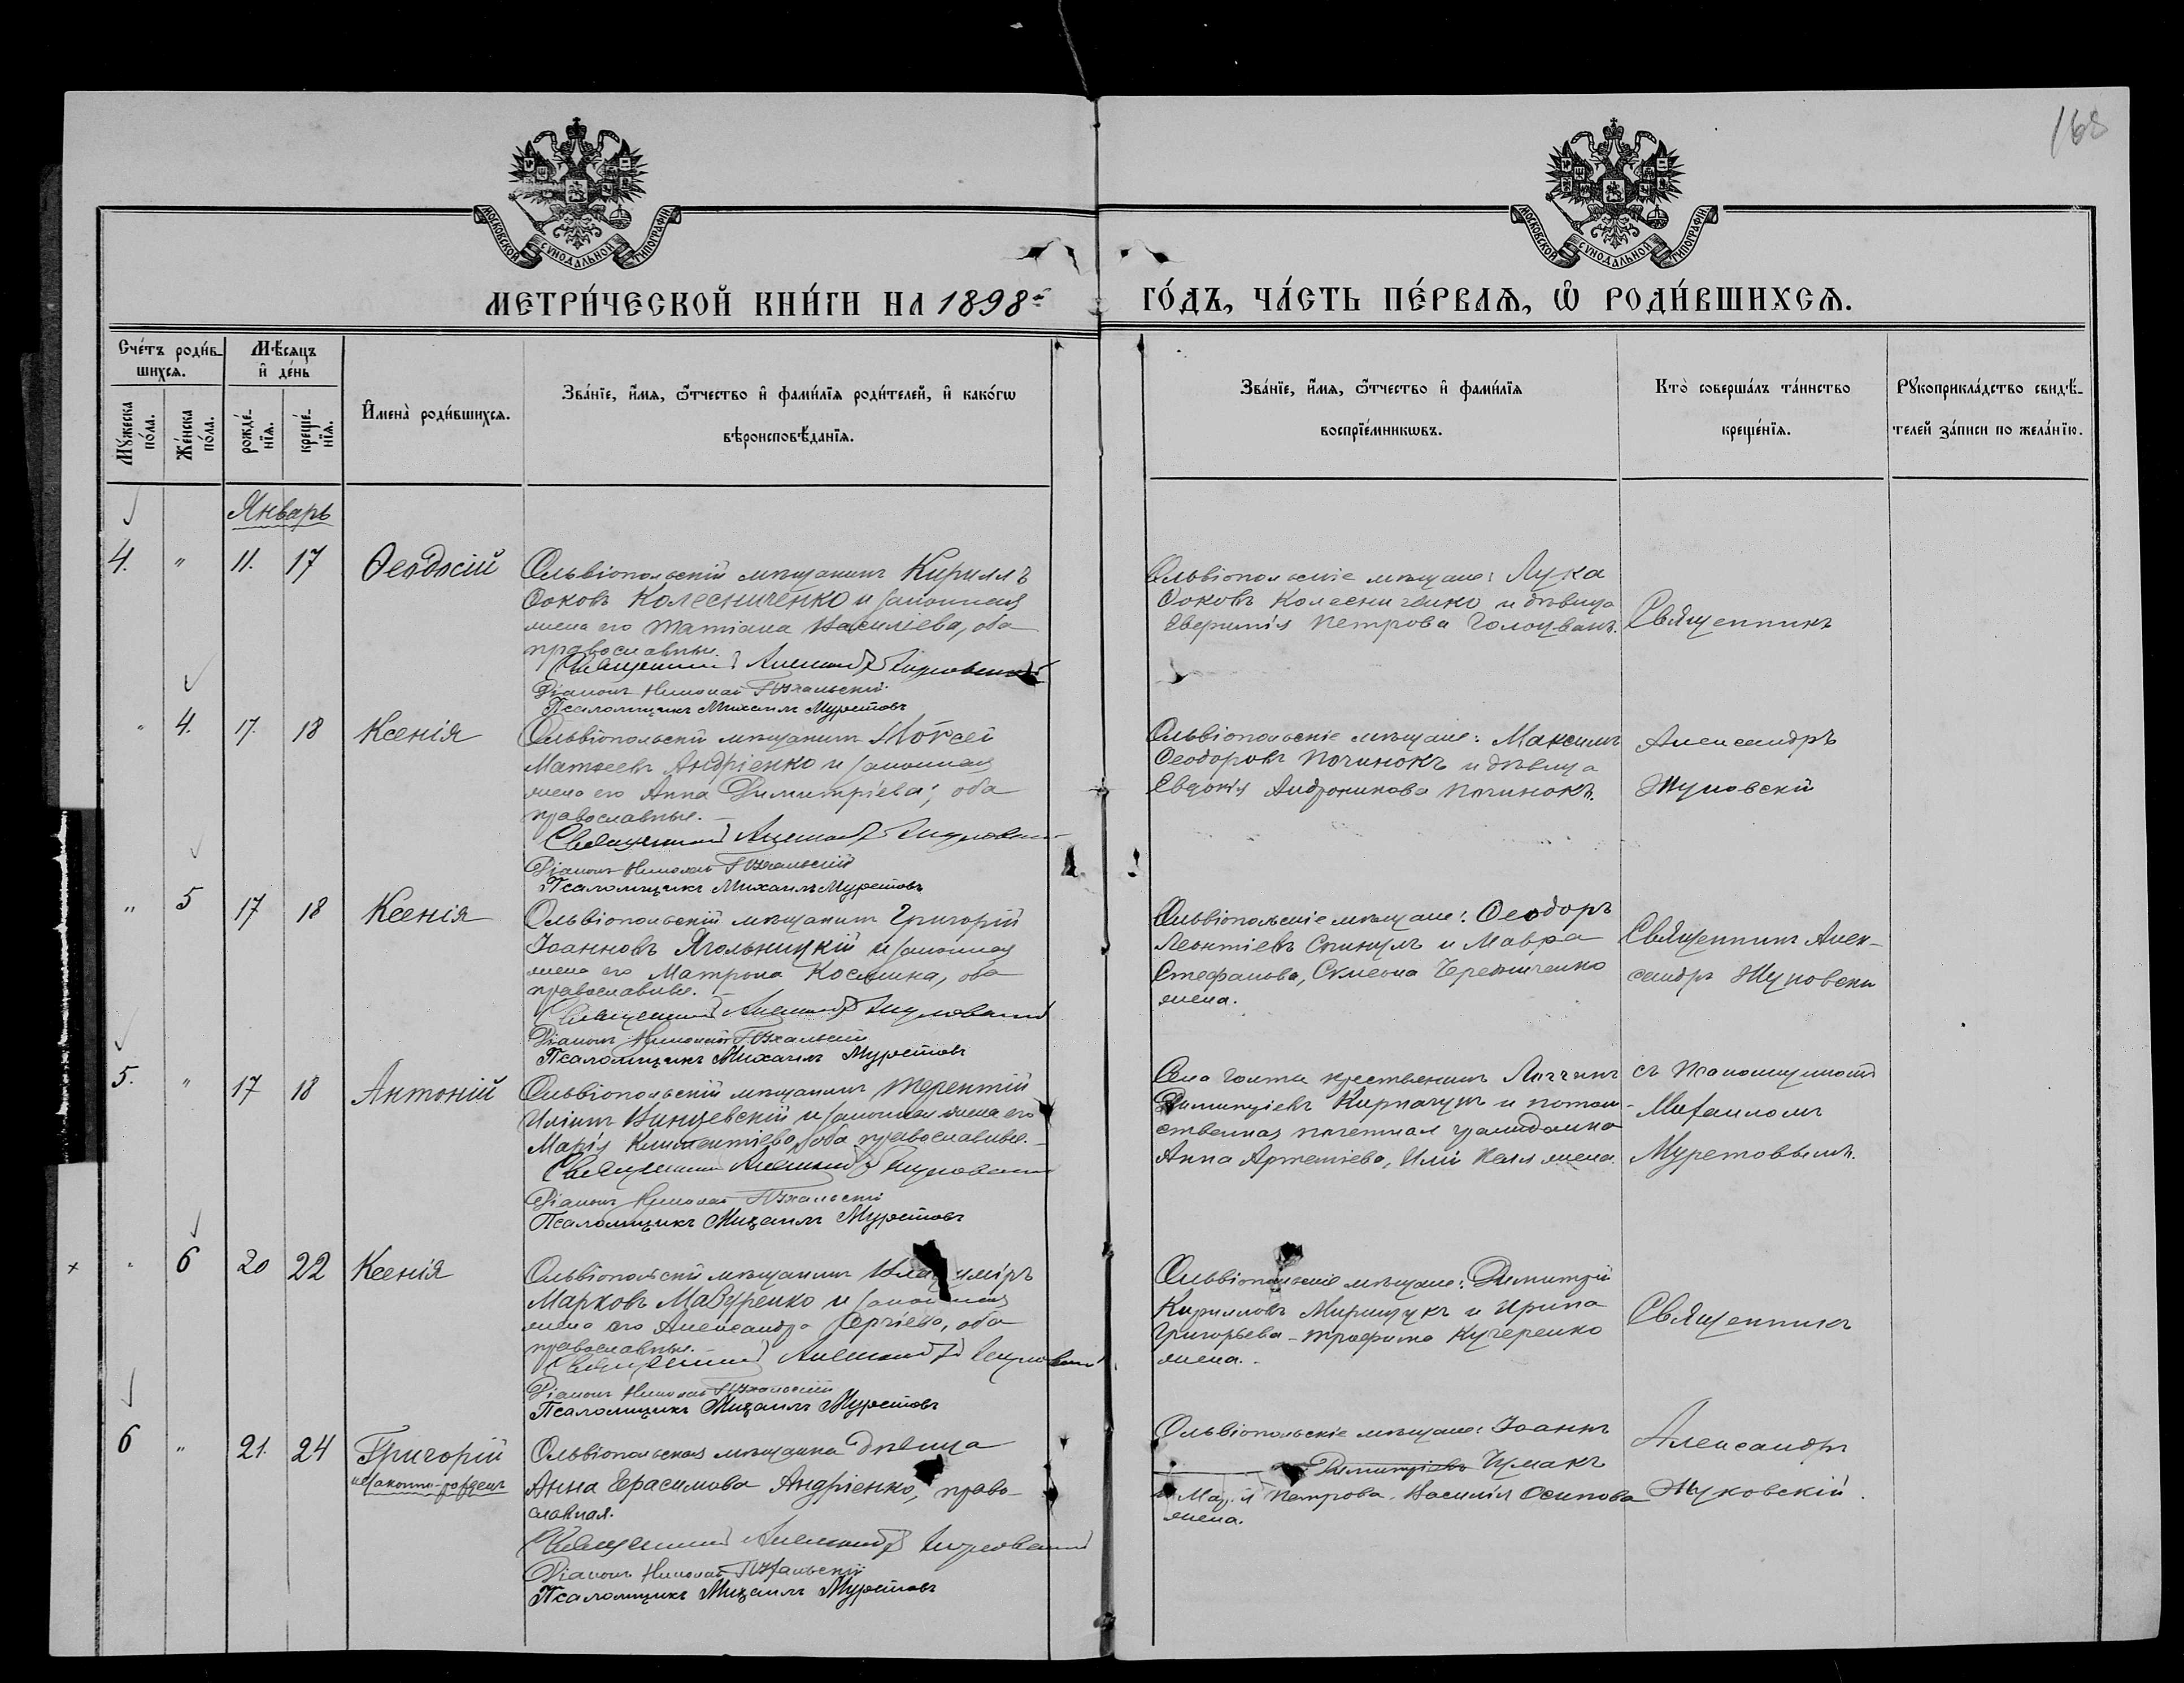 168
МОСКОВСКОЙ СѴНОДАЛЬНОЙ ТИПОГРАФІИ
МОСКОВСКОЙ СѴНОДАЛЬНОЙ ТИПОГРАФІИ
МЕТРИ́ЧЕСКОЙ КНИ́ГИ НА 1898й
ГО́ДЪ, ЧА́СТЬ ПЕ́РВАѦ, Ѡ҆ РОДИ́ВШИХСѦ.
Сче́тъ роди́в-
шихсѧ.
Мѣ́сѧцъ
и҆ де́нь
Мꙋ́жеска
по́ла.
Же́нска
по́ла.
рожде́-
нїѧ.
креще́-
нїѧ.
И҆мена̀ роди́вшихсѧ.
Зва́нїе, и҆́мѧ, ѻ҆́тчество и҆ фами́лїѧ роди́телей, и҆ како́гѡ
вѣроисповѣ́данїѧ.
Зва́нїе, и҆́мѧ, ѻ҆́тчество и҆ фами́лїѧ
воспрїе́мникѡвъ.
Кто̀ соверша́лъ та́инство
креще́нїѧ.
Рꙋкоприкла́дство свидѣ́-
телей за́писи по жела́нїю.
Январь
4. " 11. 17 Ѳеодосій
Ольвіопольскій мѣщанинъ Кириллъ
Ѳоковъ Колесниченко и законная
жена его Татіана Васильева, оба
православные.
Священникъ Александръ Жуковскій
Діаконъ Николай
Псаломщикъ Михаилъ Муретовъ
Ольвіопольскіе мѣщане: Лука
Ѳоковъ Колесниченко и дѣвица
Евфимія Петрова Голоцванъ.
Священникъ
" 4. 17. 18 Ксенія
Ольвіопольскій мѣщанинъ Моѵсей
Матѳеевъ Андріенко и законная
жена его Анна Димитріева; оба
православные.
Священникъ Александръ Жуковскій
Діаконъ Николай
Псаломщикъ Михаилъ Муретовъ
Ольвіопольскіе мѣщане: Максимъ
Ѳеодоровъ Починокъ и дѣвица
Евдокія Андроникова Починокъ.
Александръ
Жуковскій
" 5 17 18 Ксенія
Ольвіопольскій мѣщанинъ Григорій
Іоанновъ Ягольницкій и законная
жена его Матрона Космина, оба
православные.
Священникъ Александръ Жуковскій
Діаконъ Николай
Псаломщикъ Михаилъ Муретовъ
Ольвіопольскіе мѣщане: Ѳеодоръ
Леонтіевъ и Мавра
Стефанова, Чередниченко
жена.
Священникъ Алек-
сандръ Жуковскій
5. " 17 18 Антоній
Ольвіопольскій мѣщанинъ Терентій
Иліинъ и законная жена его
Марія Климентіева, оба православные.
Священникъ Александръ Жуковскій
Діаконъ Николай
Псаломщикъ Михаилъ Муретовъ
Села Голты
Димитріевъ и потом-
ственная почетная гражданка
Анна Артеміева, жена.
съ Псаломщикомъ
Михаиломъ
Муретовымъ.
+ " 6 20 22 Ксенія
Ольвіопольскій мѣщанинъ Владиміръ
Марковъ Мазуренко и законная
жена его Александра Сергіева, оба
православные.
Священникъ Александръ Жуковскій
Діаконъ Николай
Псаломщикъ Михаилъ Муретовъ
Ольвіопольскіе мѣщане: Димитрій
Кирилловъ и Ирина
Григорьева - Трофима Кучеренко
жена.
Священникъ
6 " 21. 24 Григорій
незаконно-рожденъ
Ольвіопольская мѣщанка дѣвица
Анна Герасимова Андріенко, право-
славная.
Священникъ Александръ Жуковскій
Діаконъ Николай
Псаломщикъ Михаилъ Муретовъ
Ольвіопольскіе мѣщане: Іоаннъ
Димитріевъ Чумакъ
и Марія Петрова, Василія Осипова
жена.
Александръ
Жуковскій.